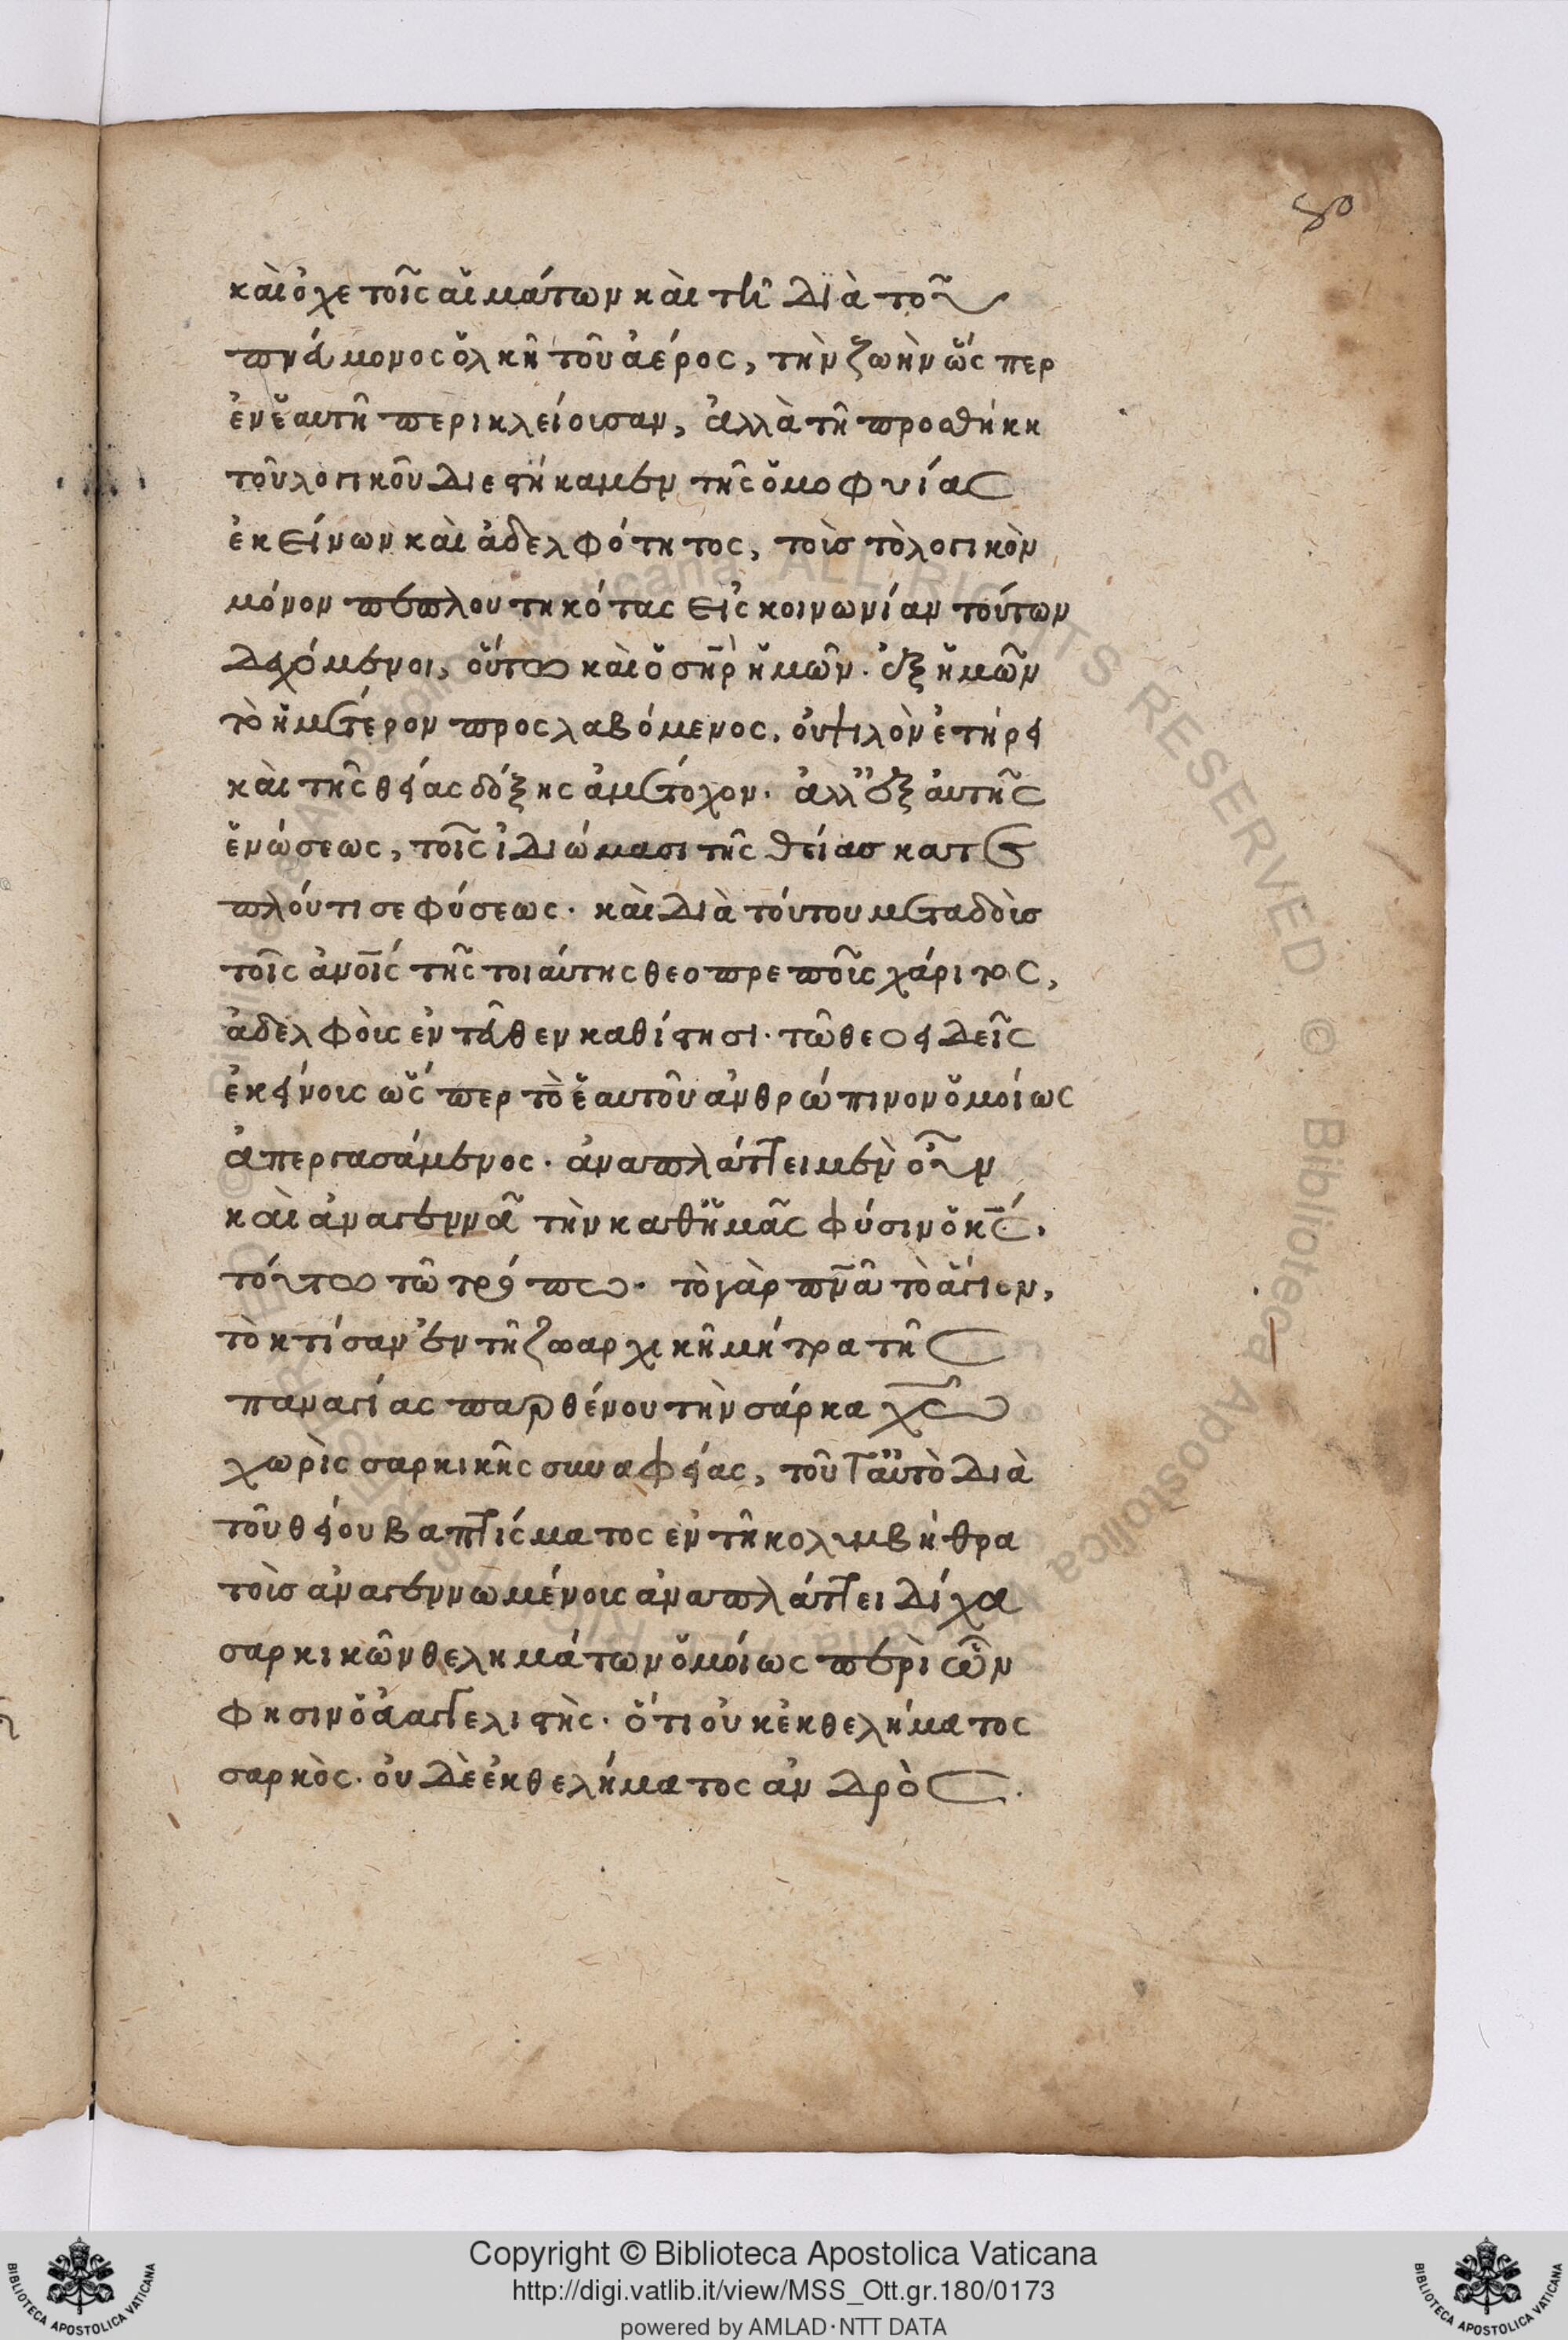 80
καὶ ὀχετοῖς αἱμάτων καὶ τῆ διὰ τοῦ
πνεύμονος ὁλκῆ τοῦ ἀέρος, τὴν ζωὴν ὥς περ
ἐν ἑαυτῆ περικλείουσαν, ἀλλὰ τῆ προσθήκη
τοῦ λογικοῦ διεστήκαμεν τῆς ὁμοφυΐας
ἐκείνων καὶ ἀδελφότητος, τοὺσ τὸ λογικὸν
μόνον πεπλουτηκότας εἰς κοινωνίαν τούτων
δεχόμενοι, οὕτω καὶ ὁ σηρ ἡμῶν. ἐξ ἡμῶν
τὸ ἡμέτερον προςλαβόμενος, οὐ ψιλὸν ἐτήρει
καὶ τῆς θείας δόξης ἀμέτοχον. ἀλλ' ἐξ αὐτῆς
ἑνώσεως, τοῖς ἰδιώμασι τῆς θείασ κατε
πλούτισε φύσεως. καὶ διὰ τούτου μεταδοὺσ
τοῖς ἀνοις τῆς τοιαύτης θεοπρεποῦς χάριτος,
ἀδελφοὺς ἐντεῦθεν καθίστησι. τῶ θεοειδεῖς
ἐκείνους ὥς περ τὸ ἑαυτοῦ ἀνθρώπινον ὁμοίως
ἀπεργασάμενος. ἀναπλάττει μὲν οὖν
καὶ ἀναγεννᾶ τὴν καθ' ἡμᾶς φύσιν ὁ κς.
τούτω τῶ τρόπω. τὸ γὰρ πνα τὸ ἅγιον,
τὸ κτίσαν ἐν τῆ ζωαρχικῆ μήτρα τῆς
παναγίας παρθένου τὴν σάρκα χω
χωρὶς σαρκικῆς συναφείας, τοῦτ' αὐτὸ διὰ
τοῦ θείου βαπτίσματος ἐν τῆ κολυμβήθρα
τοὺσ ἀναγεννωμένους ἀναπλάττει δίχα
σαρκικῶν θελημάτων ὁμοίως περὶ ὧν
φησιν ὁ εὐαγγελιστὴς. ὅτι οὐκ ἐκ θελήματος
σαρκὸς. οὐδὲ ἐκ θελήματος ἀνδρὸς.
© Biblioteca Apostolica Vaticana ALL RIGHTS RESERVED © Biblioteca Apostolica Vaticana ALL RIGHTS RESERVED
BIBLIOTECA APOSTOLICA VATICANA
Copyright © Biblioteca Apostolica Vaticana
http://digi.vatlib.it/view/MSS_Ott.gr.180/0173
powered by AMLAD·NTT DATA
BIBLIOTECA APOSTOLICA VATICANA